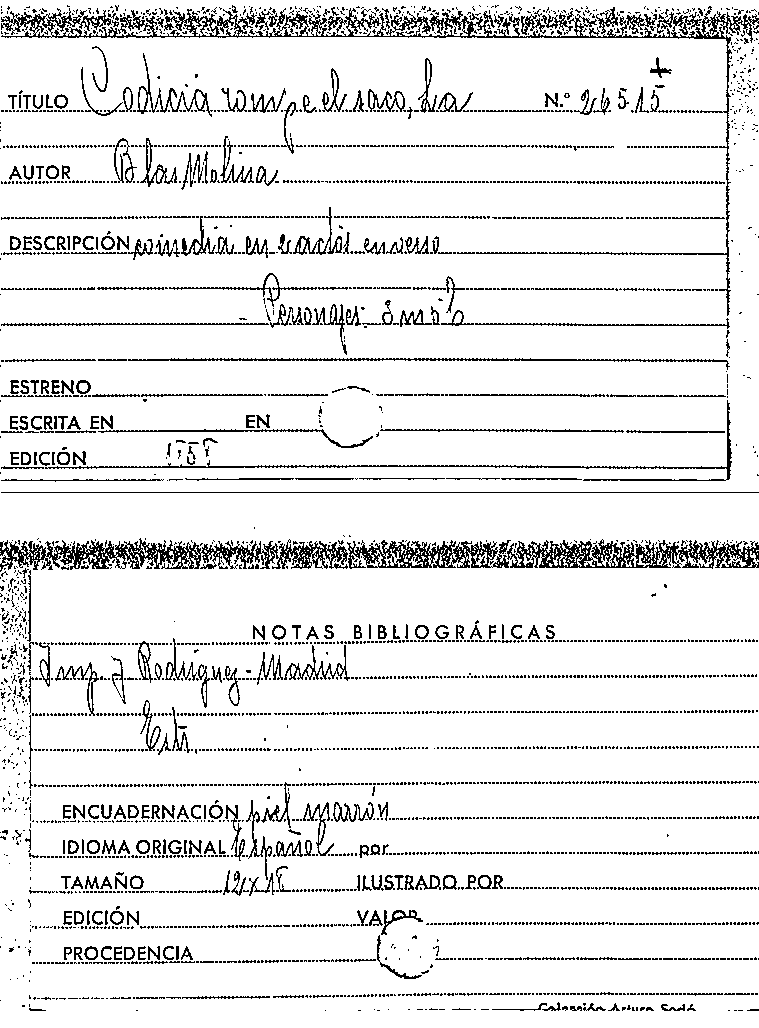 TÍTULO Codicia rompe el saco, La N.º 26515
+
AUTOR Blas Molina
DESCRIPCIÓN comedia en 2 actos en verso
- Personajes:
ESTRENO
ESCRITA EN EN
EDICIÓN
NOTAS BIBLIOGRÁFICAS
Imp. J Rodriguez - Madrid
Estr.
ENCUADERNACIÓN piel marrón
IDIOMA ORIGINAL Español por
TAMAÑO 12x18 ILUSTRADO POR
EDICIÓN VALOR
PROCEDENCIA
Colección Arturo Sedó